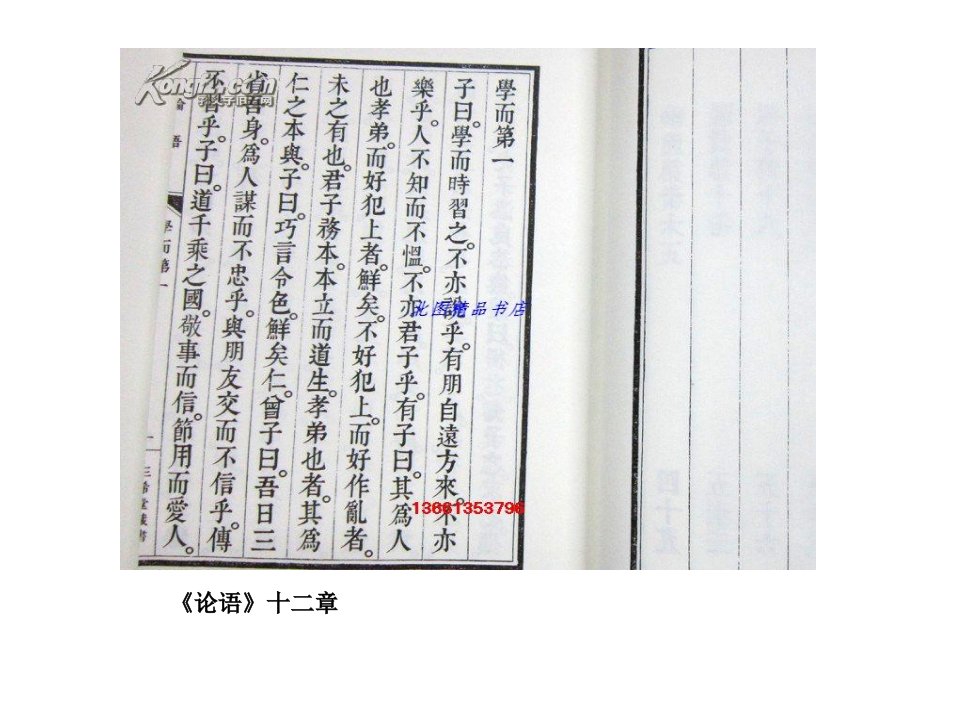 學而第一
子曰。學而時習之。不亦說乎。有朋自遠方來。不亦
樂乎。人不知而不慍。不亦君子乎。有子曰。其為人
也孝弟。而好犯上者。鮮矣。不好犯上。而好作亂者。
未之有也。君子務本。本立而道生。孝弟也者。其為
仁之本與。子曰。巧言令色。鮮矣仁。曾子曰。吾日三
省吾身。為人謀而不忠乎。與朋友交而不信乎。傳
不習乎。子曰。道千乘之國。敬事而信。節用而愛人。
論語
學而第一
一
三希堂藏書
Kongfz.com
孔夫子旧书网
北图精品书店
13661353796
《论语》十二章